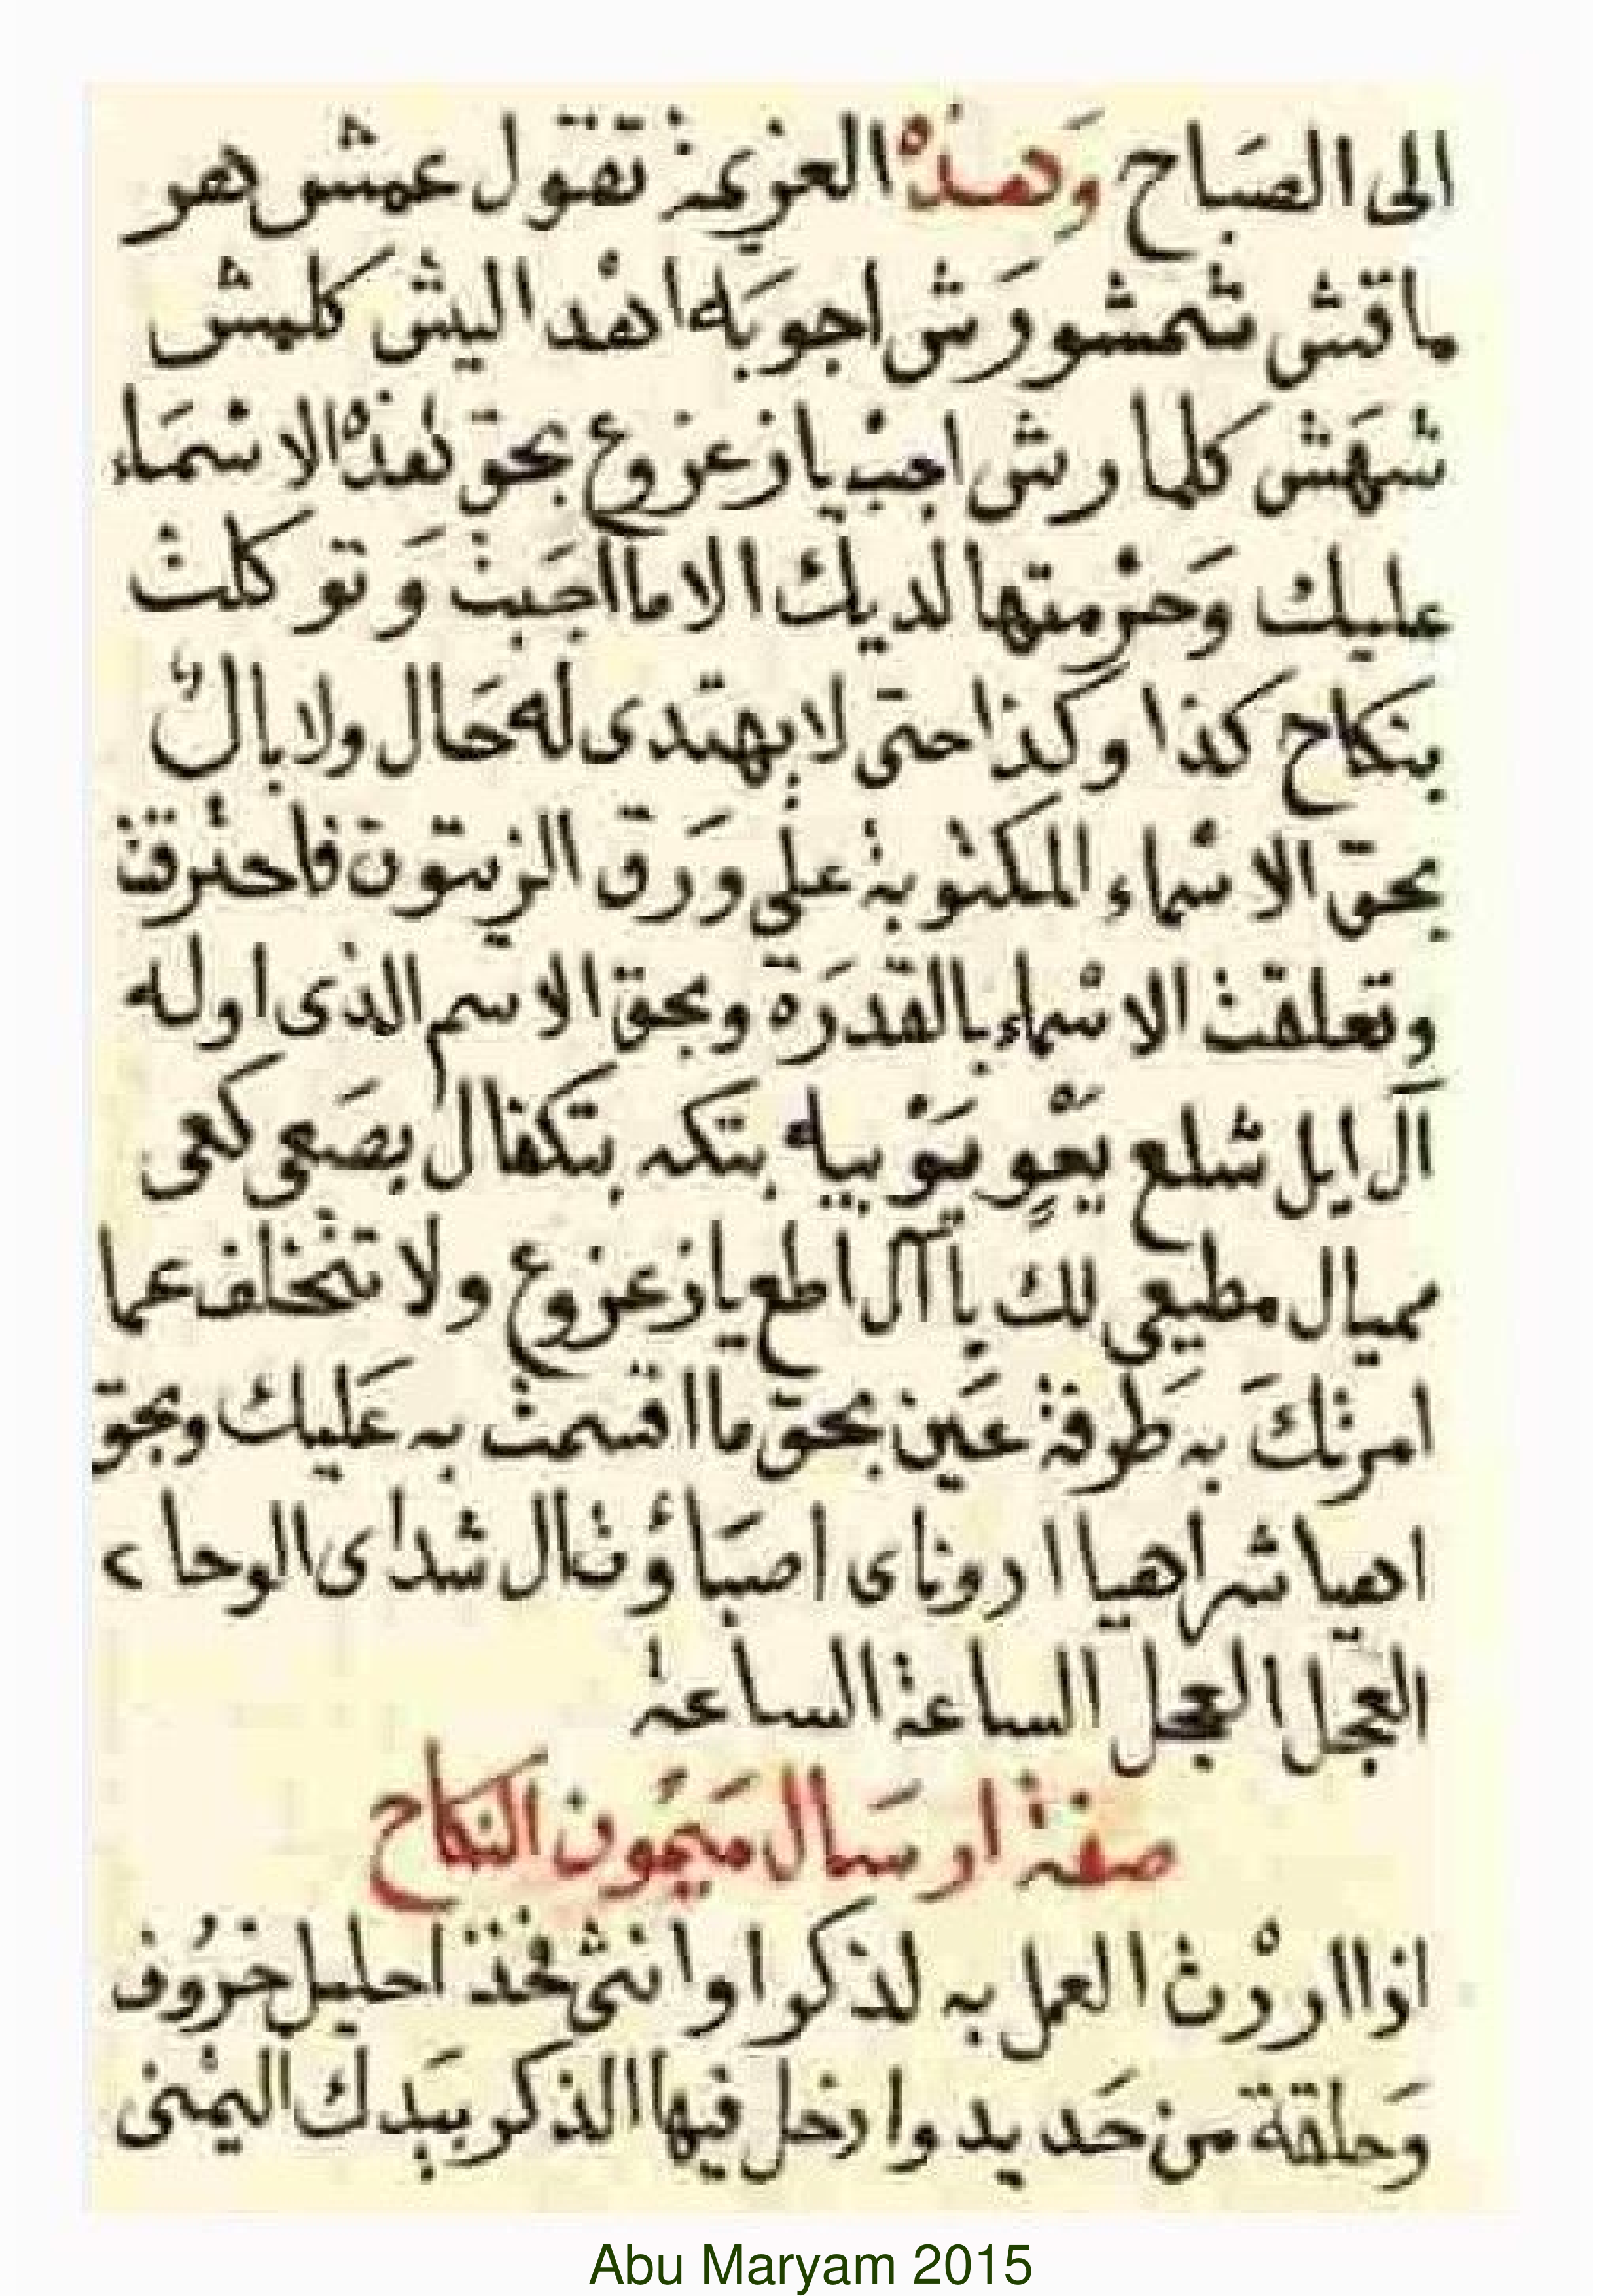 الى الصَباح وَهذه العزيمة تقول عمش هر
ماقش شمشورش اجوبَه اهدا ليش كلمش
شهش كلما رش اجب يا زعزوع بحق لهذه الاسماء
عليك وَحرمتها لديك الا ما اجَبت وَ توكلت
بنكاح كذا وكذا حتى لا يهتدى له حَال ولا بال
بحق الاسماء المكتوبة على وَرق الزيتون فاحترقت
وتعلقت الاسماء بالقدرَة وبحق الاسم الذى اوله
آل ايل شلع يَعْو يَوْبيه بتكه بتكفال بصَعى كعى
مميال مطيعى لك يا آل اطع يا زعزوع ولا تتخلف عما
امرتكَ به طَرفة عَين بحق ما اقسمت به عَليك وبحق
اهيا شراهيا ادوناى اصبَاؤت ال شداى الوحا ٢
العجل العجل الساعة الساعة
صفة ارسَال مَيمُون النكاح
اذا اردْت العمل به لذكر او انثى فخذ احليل خرُوف
وَحلقة من حَديد وادخل فيها الذكر بيَدك اليمْنى
Abu Maryam 2015